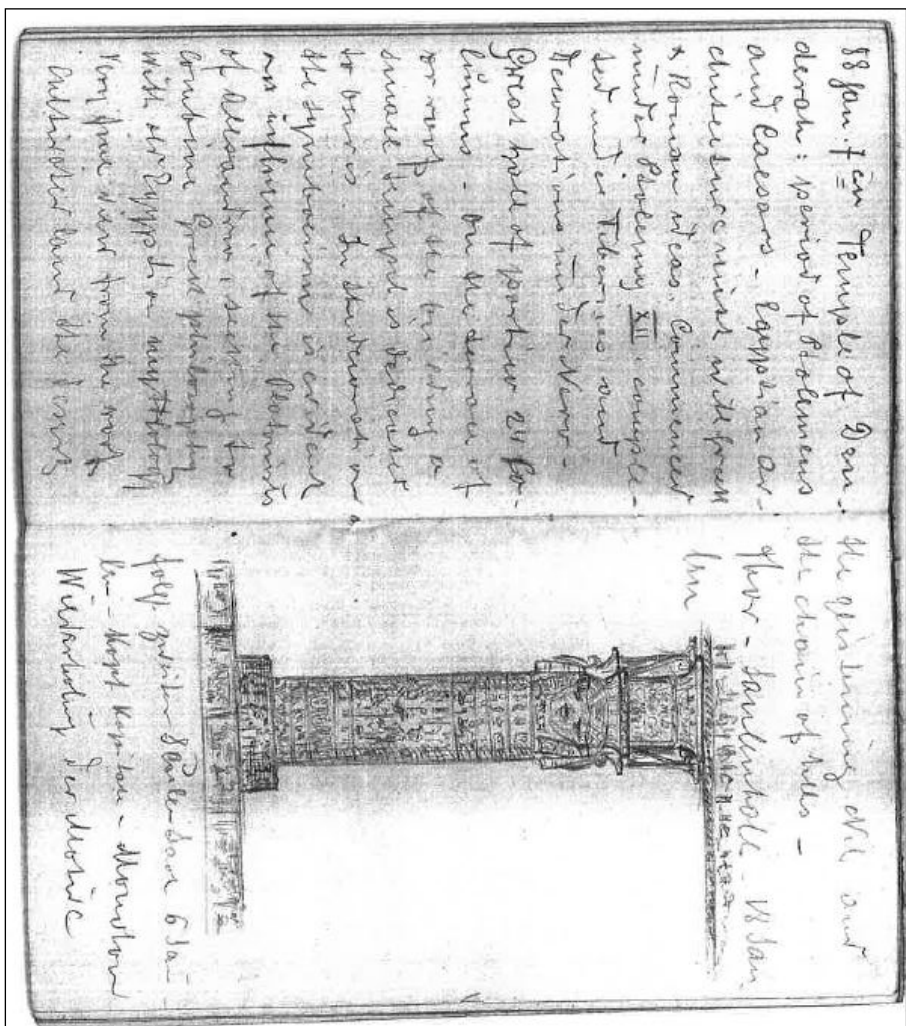 88 Jan. 7 in Temple of Den-
derah: period of Ptolemeus
and Caesars - Egyptian ar-
chitecture mixt with greek
& Roman ideas. Commenced
under Ptolemy XII comple-
ted under Tiberius and
Decorations under Nero -
Great hall of portico 24 Co-
lumns - On the terrace of
or roof of the building a
small temple is dedicated
to osiris. In the decoration
the symbolism is evident
an influence of the
of Alexandria, seeking to
combine Greek philosophy
with Egyptian mythology
Very fine view from the roof
cultivated land the
the glistening Nil and
the chain of hills -
Thor - Saulenhalle - 18 Sau-
len
folgt zweiter Säulen Saal 6 Säu-
len - Kapitäle - Monoton
Wiederholung der Motive